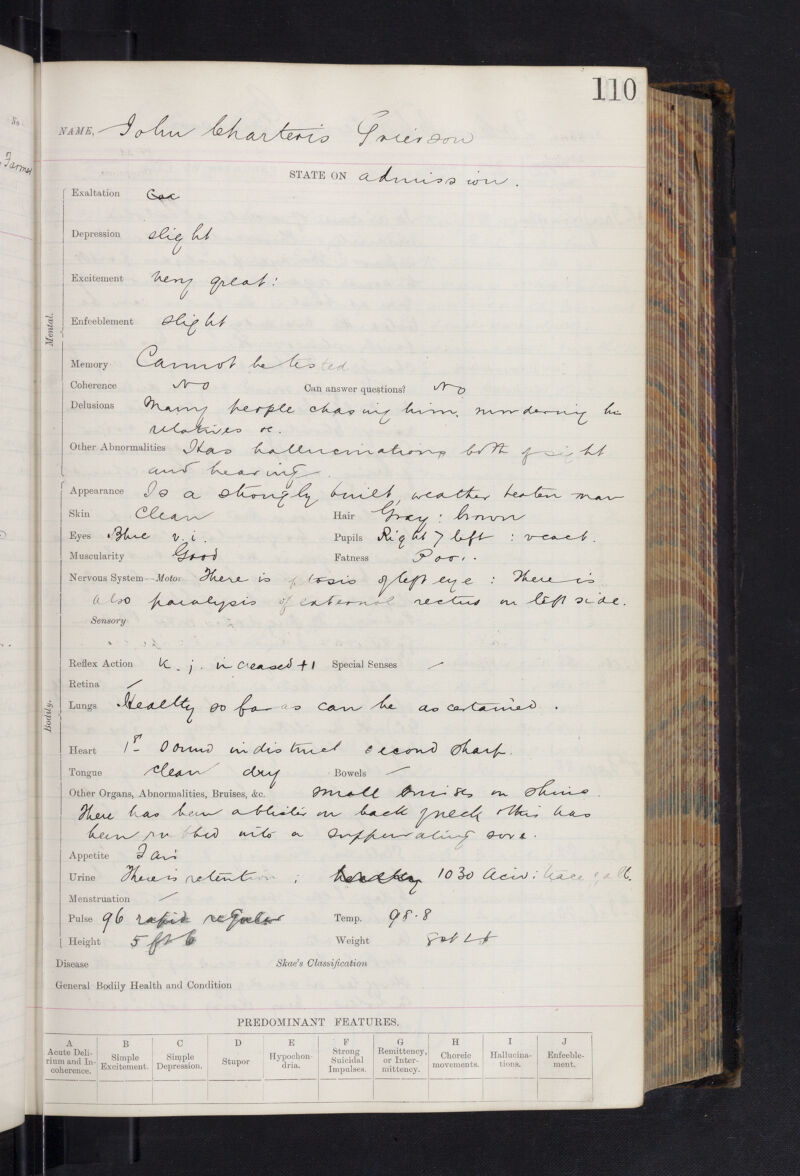 110
No
Farmer
NAME, John Charteris Grierson
STATE ON admission.
Mental.
Exaltation
Depression slight
Excitement very great:
Enfeeblement slight
Memory Cannot be tested
Coherence No Can answer questions? No
Delusions Many people chasing him, murdering his
relatives &c.
Other Abnormalities Has hallucinations both of sight
and hearing.
Bodily.
Appearance Is a strongly built, weather beaten man
Skin Clean Hair Gray: brown
Eyes Blue v.i. Pupils Right > left : react.
Muscularity Good Fatness Poor.
Nervous System—Motor There is ptosis of left eye : There is
also paralysis of external rectus on left side.
Sensory
Reflex Action K. j. increased +1 Special Senses /
Retina /
Lungs Healthy so far as can be ascertained.
Heart 1st Sound indistinct second sharp.
Tongue clean dry Bowels /
Other Organs, Abnormalities, Bruises, &c. small bruises on shins.
There has been a blister on back of neck & this has
been rubbed into a suppurating sore.
Appetite Fair
Urine There is retention ; 1030 Acid: trace alb.
Menstruation /
Pulse 96 rapid regular Temp. 98.8
Height 5 ft 6 Weight
Disease Skae's Classification
General Bodily Health and Condition
PREDOMINANT FEATURES.
A B C D E F G H I J
Acute Deli-
rium and In-
coherence. Simple
Excitement. Simple
Depression. Stupor Hypochon-
dria. Strong
Suicidal
Impulses. Remittency,
or Inter-
mittency. Choreic
movements. Hallucina-
tions. Enfeeble-
ment.